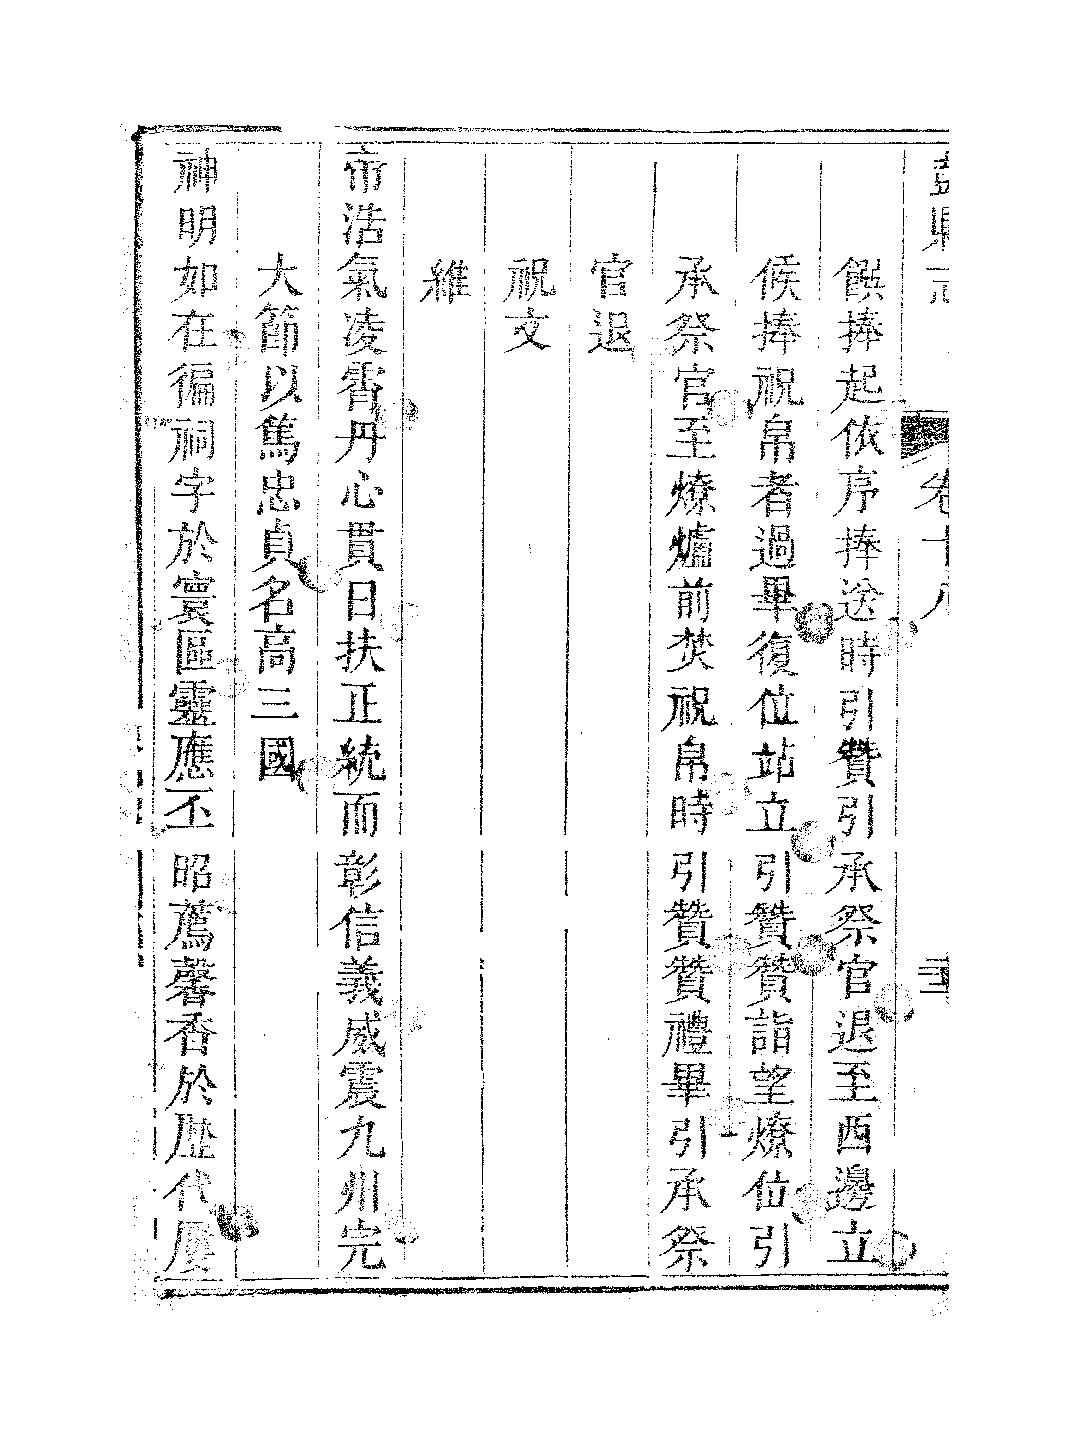 縣志 卷十八
饌捧起依序捧送時引贊引承祭官退至西邊立
候捧祝帛者過畢復位站立引贊贊詣望燎位引
承祭官至燎爐前焚祝帛時引贊贊禮畢引承祭
官退
祝文
維
帝浩氣凌霄丹心貫日扶正統而彰信義威震九州完
大節以篤忠貞名高三國
神明如在徧祠宇於寰區靈應丕昭薦馨香於歷代屢